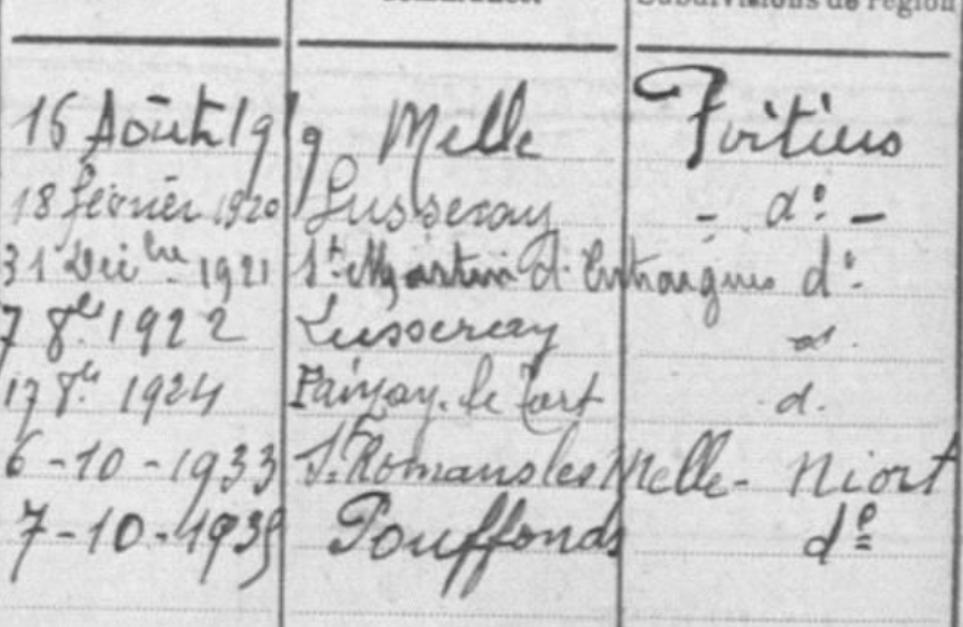 Subdivisions de région
16 Août 1919 Melle Poitiers
18 février 1920 Lusseray - d° -
31 Dec bre 1921 St Martin d'Entraigues d°
7 8bre 1922 Lusseray d°
17 8bre 1924 Paizay le Tort d.
6-10-1933 St Romans les Melle - Niort
7-10-1935 Pouffonds d°